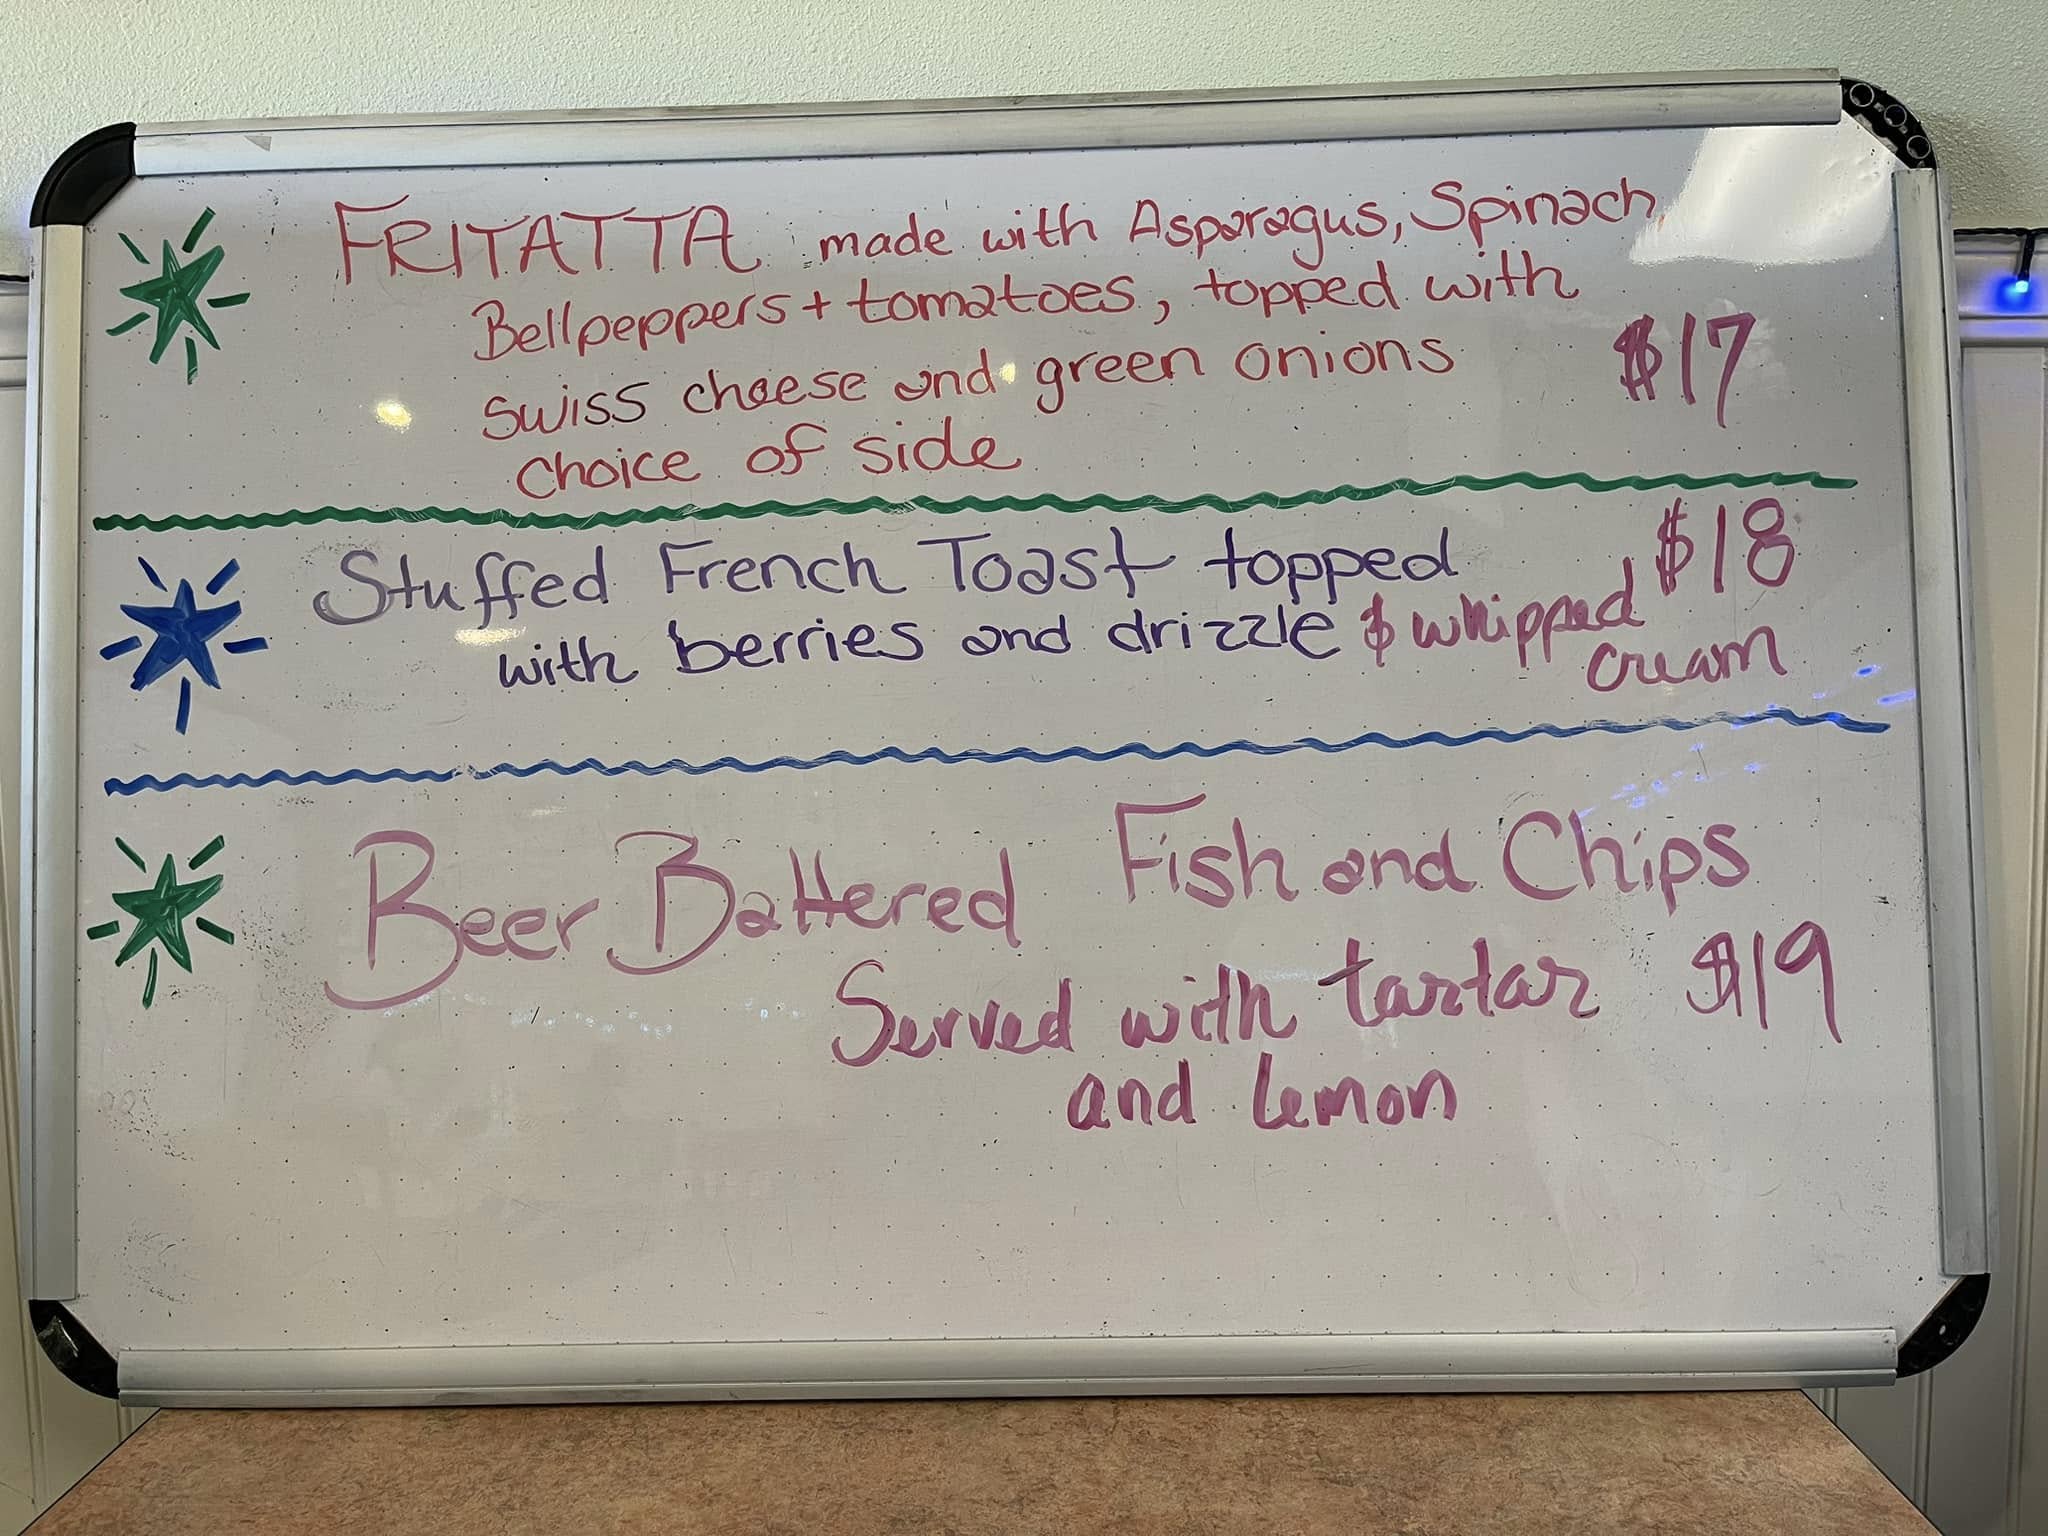 FRITATTA made with Asparagus, Spinach,
Bellpeppers + tomatoes, topped with
swiss cheese and green onions $17
choice of side
Stuffed French Toast topped $18
with berries and drizzle & whipped
cream
Beer Battered Fish and Chips
Served with tartar $19
and lemon